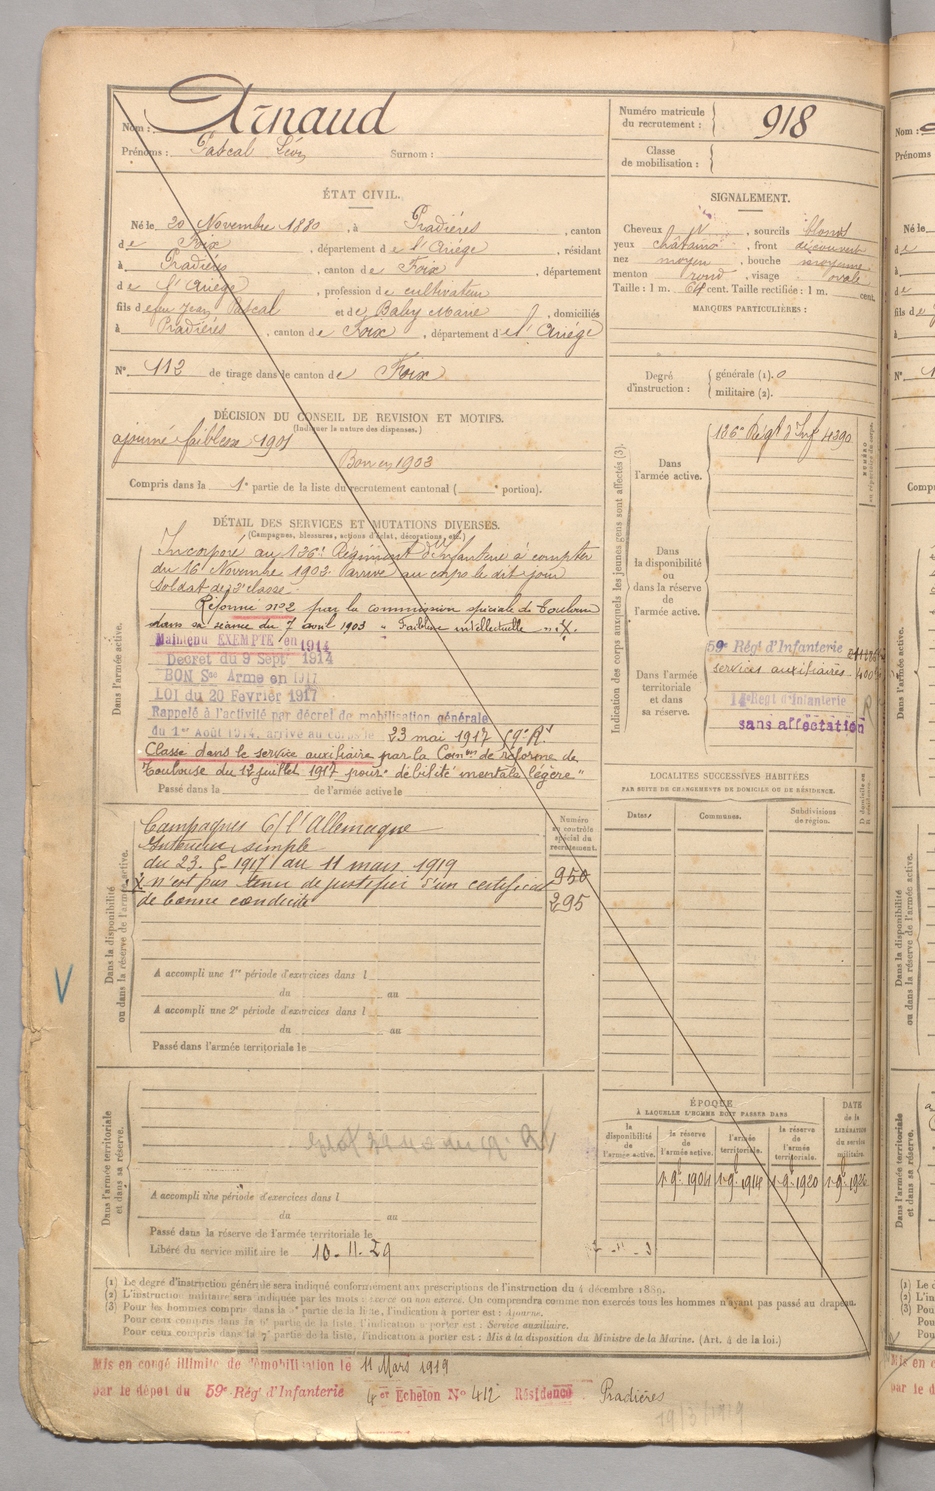 Nom : Arnaud
Prénoms : Pascal Léon Surnom :
Numéro matricule du recrutement : 918
Classe de mobilisation :
ÉTAT CIVIL.
Né le 20 Novembre 1880, à Pradières, canton
de Foix, département de l'Ariége, résidant
à Pradières, canton de Foix, département
de l'Ariége, profession de cultivateur
fils de feu Jean Pascal et de Baby Marie, domiciliés
à Pradières, canton de Foix, département de l'Ariége
N° 112 de tirage dans le canton de Foix
SIGNALEMENT.
Cheveux sourcils blonds
yeux châtains, front découvert
nez moyen, bouche moyenne
menton rond, visage ovale
Taille : 1 m. 64 cent. Taille rectifiée : 1 m. cent.
MARQUES PARTICULIÈRES :
Degré d'instruction : générale (1). 0
militaire (2).
DÉCISION DU CONSEIL DE REVISION ET MOTIFS.
(Indiquer la nature des dispenses.)
ajourné faiblesse 1901
Bon en 1903
Compris dans la 1e partie de la liste du recrutement cantonal ( e portion).
DÉTAIL DES SERVICES ET MUTATIONS DIVERSES.
(Campagnes, blessures, actions d'éclat, décorations, etc.)
Dans l'armée active.
Incorporé au 136e Régiment d'Infanterie à compter
du 16 Novembre 1903 arrivé au corps le dit jour
soldat de 2e classe.
Réformé n° 2 par la commission spéciale de Toulouse
dans sa séance du 7 avril 1903 " Faiblesse intellectuelle " X.
Maintenu EXEMPTÉ en 1914
Décret du 9 Sept 1914
BON Sce Armé en 1917
LOI du 20 Février 1917
Rappelé à l'activité par décret de mobilisation générale
du 1er Août 1914, arrivé au corps le 23 mai 1917 59e RI
Classé dans le service auxiliaire par la Comon de réforme de
Toulouse du 12 juillet 1917 pour " débilité mentale légère "
Passé dans la de l'armée active le
Indication des corps auxquels les jeunes gens sont affectés (3).
Dans l'armée active.
136e Régt d'Inf 4390
NUMÉRO
Dans la disponibilité ou dans la réserve de l'armée active.
Dans l'armée territoriale et dans sa réserve.
59e Régt d'Infanterie
services auxiliaires
14e Regt d'Infanterie
sans affectation
LOCALITÉS SUCCESSIVES HABITÉES
PAR SUITE DE CHANGEMENTS DE DOMICILE OU DE RÉSIDENCE.
Dates. Communes. Subdivisions de région. D. domicile ou R. résidence.
Dans la disponibilité ou dans la réserve de l'armée active.
Numéro au contrôle spécial du recrutement.
Campagnes C/ l'Allemagne
Intérieur simple
du 23. 5. 1917 au 11 mars 1919
X n'est pas tenu de justifier d'un certificat 950
de bonne conduite 295
A accompli une 1re période d'exercices dans l
du au
A accompli une 2e période d'exercices dans l
du au
Passé dans l'armée territoriale le
Dans l'armée territoriale et dans sa réserve.
A accompli une période d'exercices dans l
du au
Passé dans la réserve de l'armée territoriale le
Libéré du service militaire le 10-11-29
ÉPOQUE
À LAQUELLE L'HOMME DOIT PASSER DANS
la disponibilité de l'armée active. la réserve de l'armée active. l'armée territoriale. la réserve de l'armée territoriale. DATE de la LIBÉRATION du service militaire.
1. 9e 1904 1. 9e 1914 1. 9e 1920 1. 9e 1926
(1) Le degré d'instruction générale sera indiqué conformément aux prescriptions de l'instruction du 4 décembre 1889.
(2) L'instruction militaire sera indiquée par les mots : exercé ou non exercé. On comprendra comme non exercés tous les hommes n'ayant pas passé au drapeau.
(3) Pour les hommes compris dans la 5e partie de la liste, l'indication à porter est : Ajourné.
Pour ceux compris dans la 6e partie de la liste, l'indication à porter est : Service auxiliaire.
Pour ceux compris dans la 7e partie de la liste, l'indication à porter est : Mis à la disposition du Ministre de la Marine. (Art. 4 de la loi.)
Mis en congé illimité de démobilisation le 11 Mars 1919
par le dépôt du 59e Régt d'Infanterie 4er Echelon N° 412 Résidence Pradières
19/3/1919